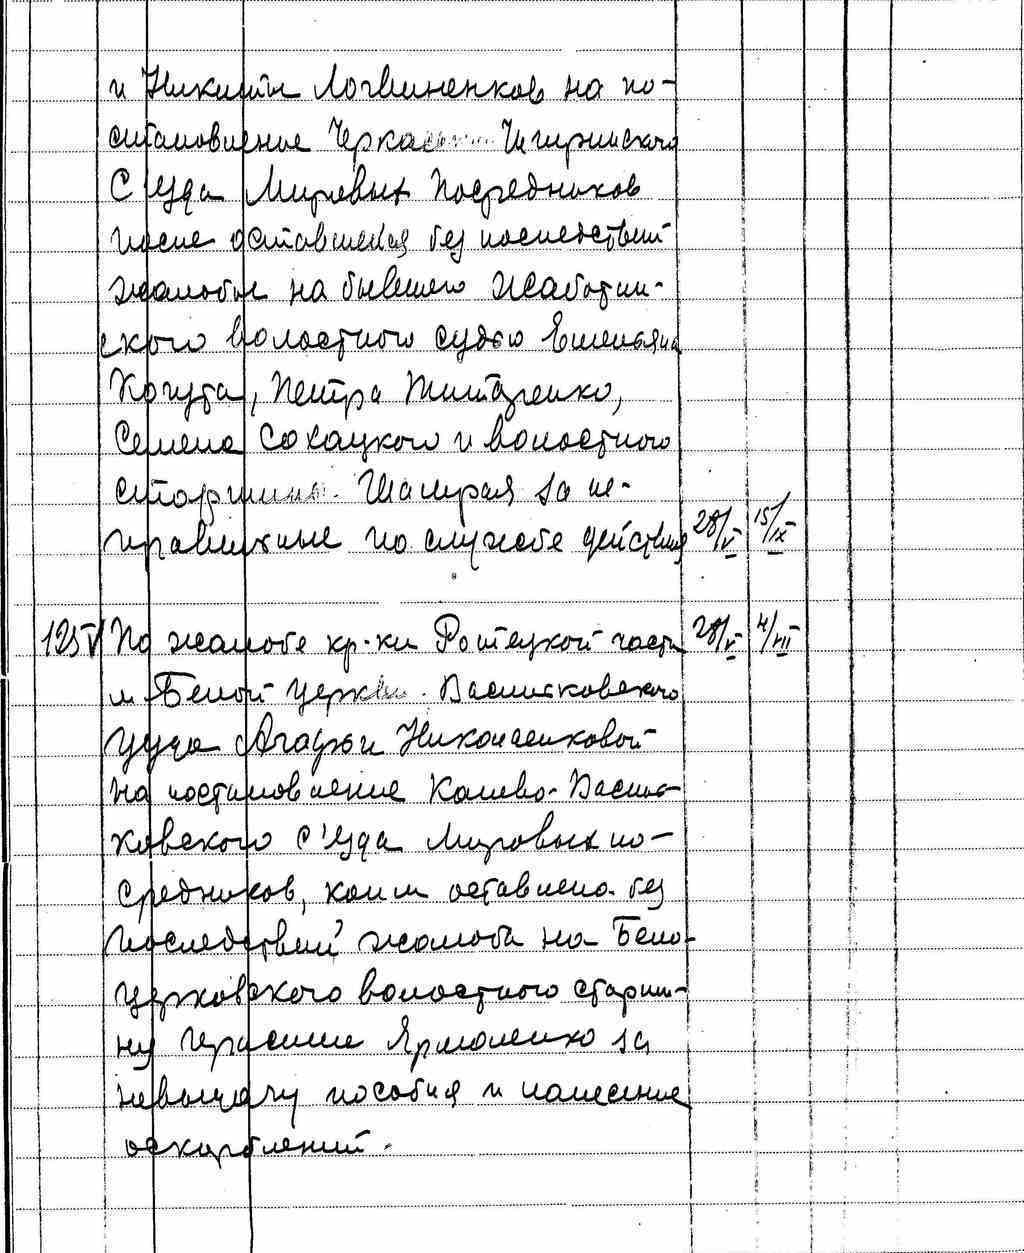 и Никиты Логвиненков на по-
становление Черкасско-Чигиринского
С'езда Мировых Посредников
после оставшейся без последствий
жалобы на бывшего Жаботин-
ского волостного судью Емельяна
Когута, Петра
Семена Сохацкого и волостного
старшины за не-
правильные по службе действия 28/V 15/IX
125 V По жалобе кр-ки части 28/V 4/VIII
м. Белой Церкви Васильковского
уезда Агафьи Николаенковой
на постановление Киево-Василь-
ковского с'езда Мировых по-
средников, коим оставлена без
последствий жалоба на Бело-
церковского волостного старши-
ну Герасима Ярмоленко за
невыдачу пособия и нанесение
оскорблений.